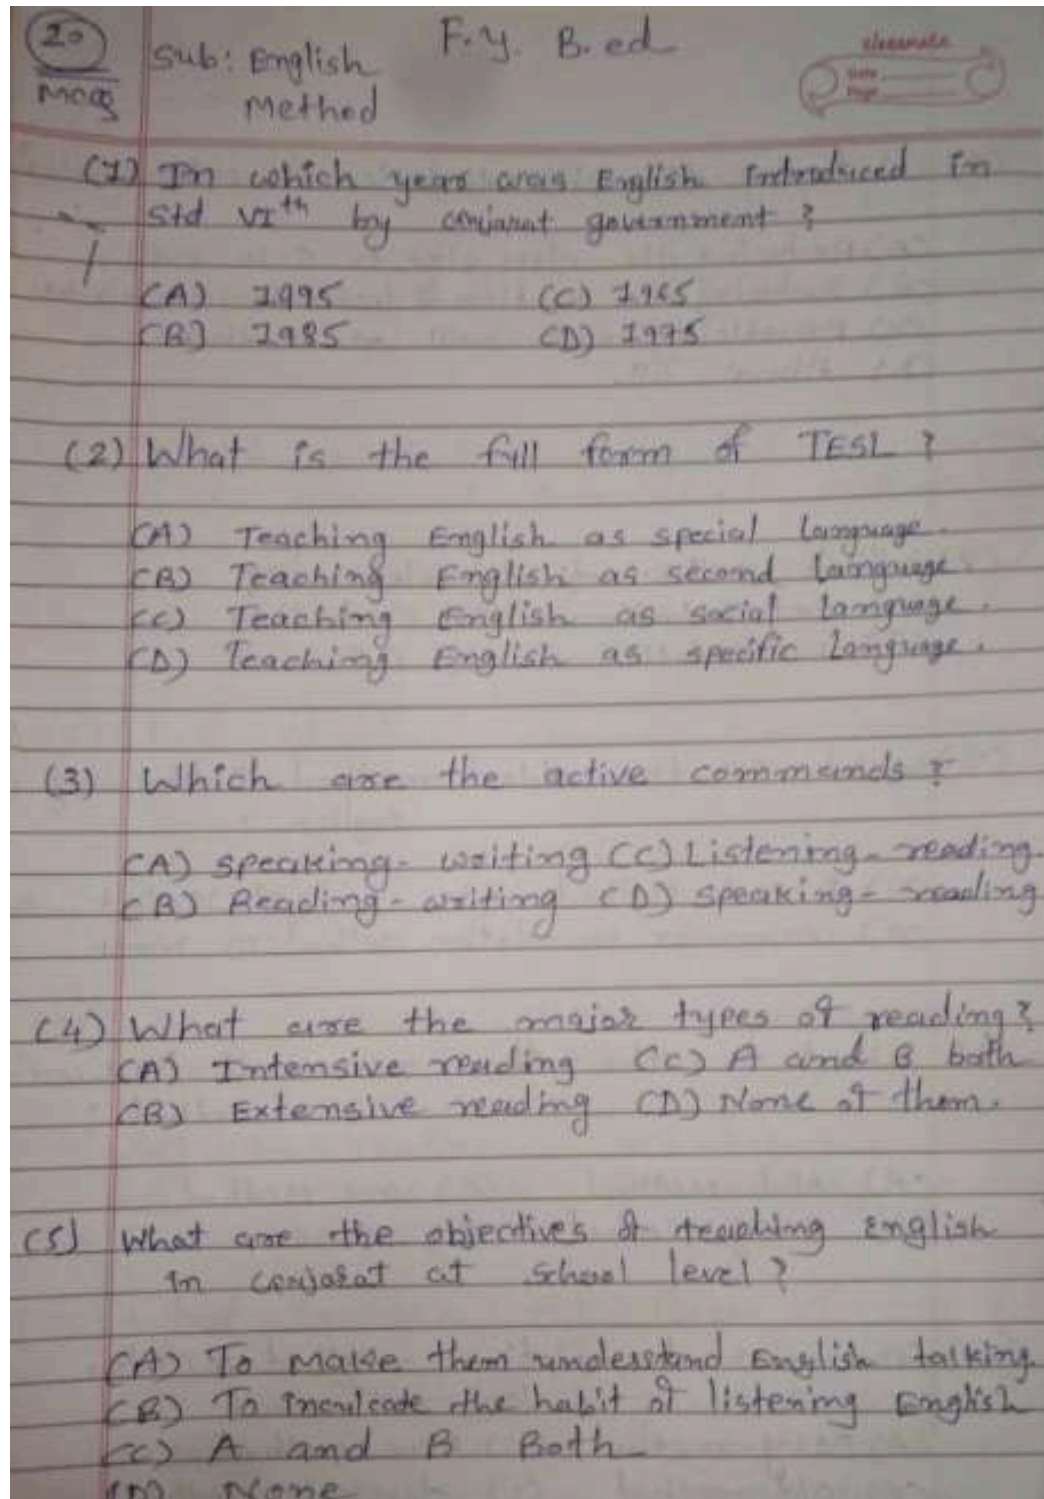 20
MCQs
Sub: English
Method
F.Y. B.ed
classmate
Date
Page
(1) In which years was English introduced in
Std VIth by Gujarat government ?
(A) 1995 (C) 1965
(B) 1985 (D) 1975
(2) What is the full form of TESL ?
(A) Teaching English as special language.
(B) Teaching English as second language.
(C) Teaching English as social language.
(D) Teaching English as specific language.
(3) Which are the active commands ?
(A) speaking - writing (C) Listening - reading.
(B) Reading - writing (D) speaking - reading
(4) What are the major types of reading ?
(A) Intensive reading (C) A and B both
(B) Extensive reading (D) None of them.
(5) What are the objectives of teaching English
in Gujarat at school level ?
(A) To make them understand English talking.
(B) To inculcate the habit of listening English
(C) A and B Both
(D) None